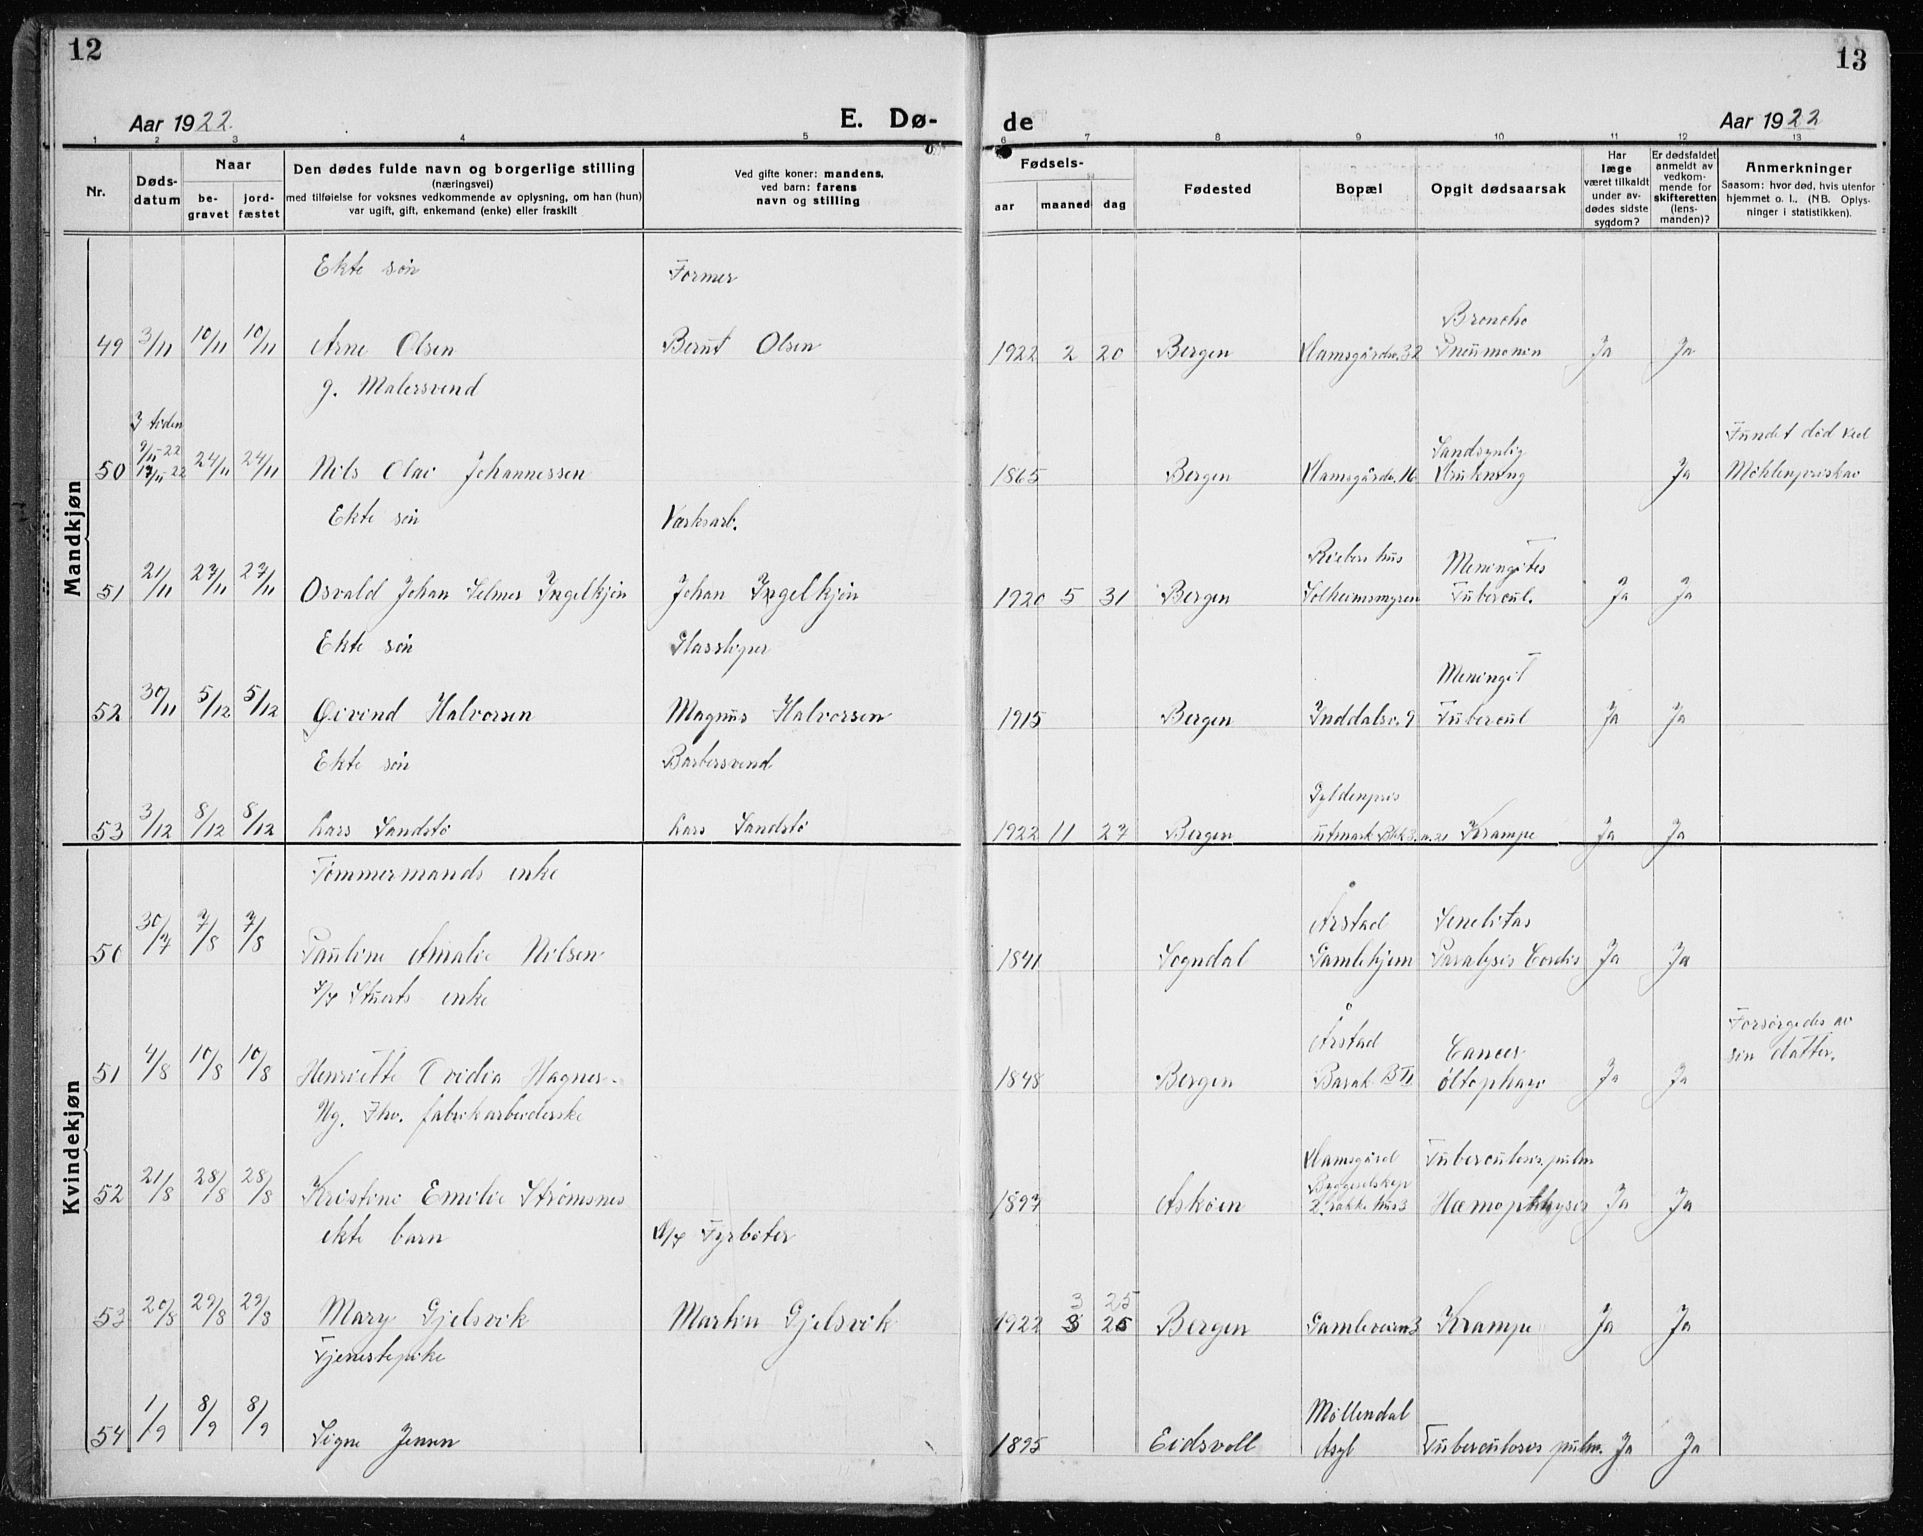 12
13
Aar 1922
E. Dø-
de
Aar 1922
1 2 3 4 5 6 7 8 9 10 11 12 13
Nr.
Døds-
datum
Naar
be-
gravet
jord-
fæstet
Den dødes fulde navn og borgerlige stilling
(næringsvei)
med tilføielse for voksnes vedkommende av oplysning, om han (hun)
var ugift, gift, enkemand (enke) eller fraskilt
Ved gifte koner: mandens,
ved barn: farens
navn og stilling
Fødsels-
aar maaned dag
Fødested
Bopæl
Opgit dødsaarsak
Har
læge
været tilkaldt
under av-
dødes sidste
sygdom?
Er dødsfaldet
anmeldt av
vedkom-
mende for
skifteretten
(lens-
manden)?
Anmerkninger
Saasom: hvor død, hvis utenfor
hjemmet o. l., (NB. Oplys-
ninger i statistikken).
Mandkjøn
Ekte søn Former
Broncho
49 3/11 10/11 10/11 Arne Olsen Bernt Olsen 1922 2 20 Bergen 32 Pneumonin Ja Ja
g. Malersvend
I tiden
9/11-22 Sandsynlig Fundet død ved
50 17/11-22 24/11 24/11 Nils Olai Johannessen 1865 Bergen 16 Drukning Ja Möhlenpriskai
Ekte søn Værksarb.
Riebers hus Meningites
51 21/11 27/11 27/11 Osvald Johan Selmer Ingelkjøn Johan Ingelkjøn 1920 5 31 Bergen Solheimsmyren Tubercul. Ja Ja
Ekte søn Glassliper
Meningit
52 30/11 5/12 5/12 Øivind Halvorsen Magnus Halvorsen 1915 Bergen Inddalsv. 9 Tubercul Ja Ja
Ekte søn Barbersvend
Gyldenpris
53 3/12 8/12 8/12 Lars Sandstø Lars Sandstø 1922 11 27 Bergen utmark Krampe Ja Ja
Kvindekjøn
Tømmermands enke
Årstad Senelitas
50 30/7 7/8 7/8 Pauline Amalie Nilsen 1841 Sogndal Gamlehjem Paralysis Cordis Ja Ja
Stuerts enke
Årstad Cancer Forsørgedes av
sin datter.
51 4/8 10/8 10/8 Henriette Ovidia Hagner 1848 Bergen Barak Ja Ja
Ug. fabrikarbeiderske
Tuberculosis pulm
Byggeselskap
52 21/8 28/8 28/8 Kristine Emilie Strømsnes 1897 Askøen 2. række hus 3 Hæmopthysis Ja Ja
ekte barn Fyrbøter
3 25
53 20/8 29/8 29/8 Mary Gjelsvik Martin Gjelsvik 1922 3 26 Bergen Gamleveien 3 Krampe Ja Ja
Tjenestepike
Møllendal
54 1/9 8/9 8/9 Signe Jensen 1895 Eidsvoll Asyl Tuberculosis pulm. Ja Ja